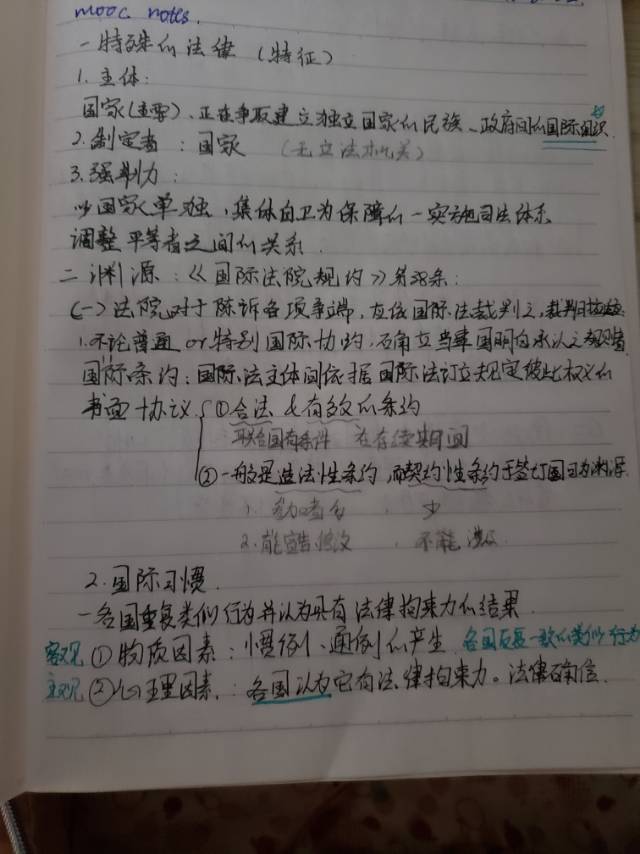 mooc notes.
一特殊的法律（特征）
1. 主体：
国家(主要)、正在争取建立独立国家的民族、政府间的国际组织
2. 制定者：国家 （无立法机关）
3. 强制力：
以国家单独，集体自卫为保障的一实施司法体系
调整平等者之间的关系.
二 渊源：《国际法院规约》第38条：
(一) 法院对于陈诉各项争端，应依国际法裁判之，裁判时应
1. 不论普通 or 特别国际协约，确立当事国明白承认之规
国际条约：国际法主体间依据国际法订立规定彼此权义的
书面协议 ① 合法 & 有效的条约
联合国有条件 在存续期间
② 一般是造法性条约，而契约性条约于签订国可为渊源
1. 参加者多 . 少
2. 能 . 不能
2. 国际习惯.
一各国重复类似行为并认为具有法律拘束力的结果.
客观 ① 物质因素：惯例、通例的产生 各国反复一致的类似行为
主观 ② 心理因素：各国认为它有法律拘束力。法律确信.